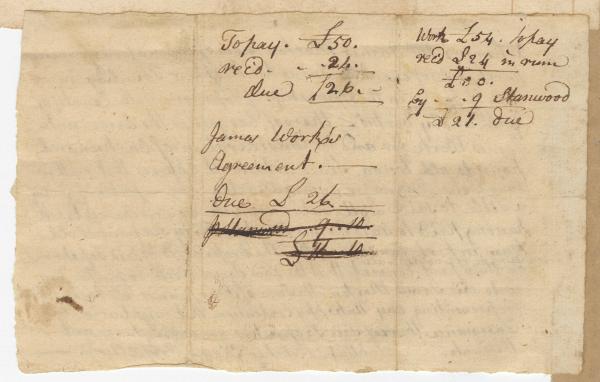 To pay. £50.
rec'd. - - 24.
due £26. -
Work £54. To pay
rec'd £24 in rum
£30.
By - - 9 Stanwood
£21. due
James Work's
Agreement.
due £ 26
9. 10.
£